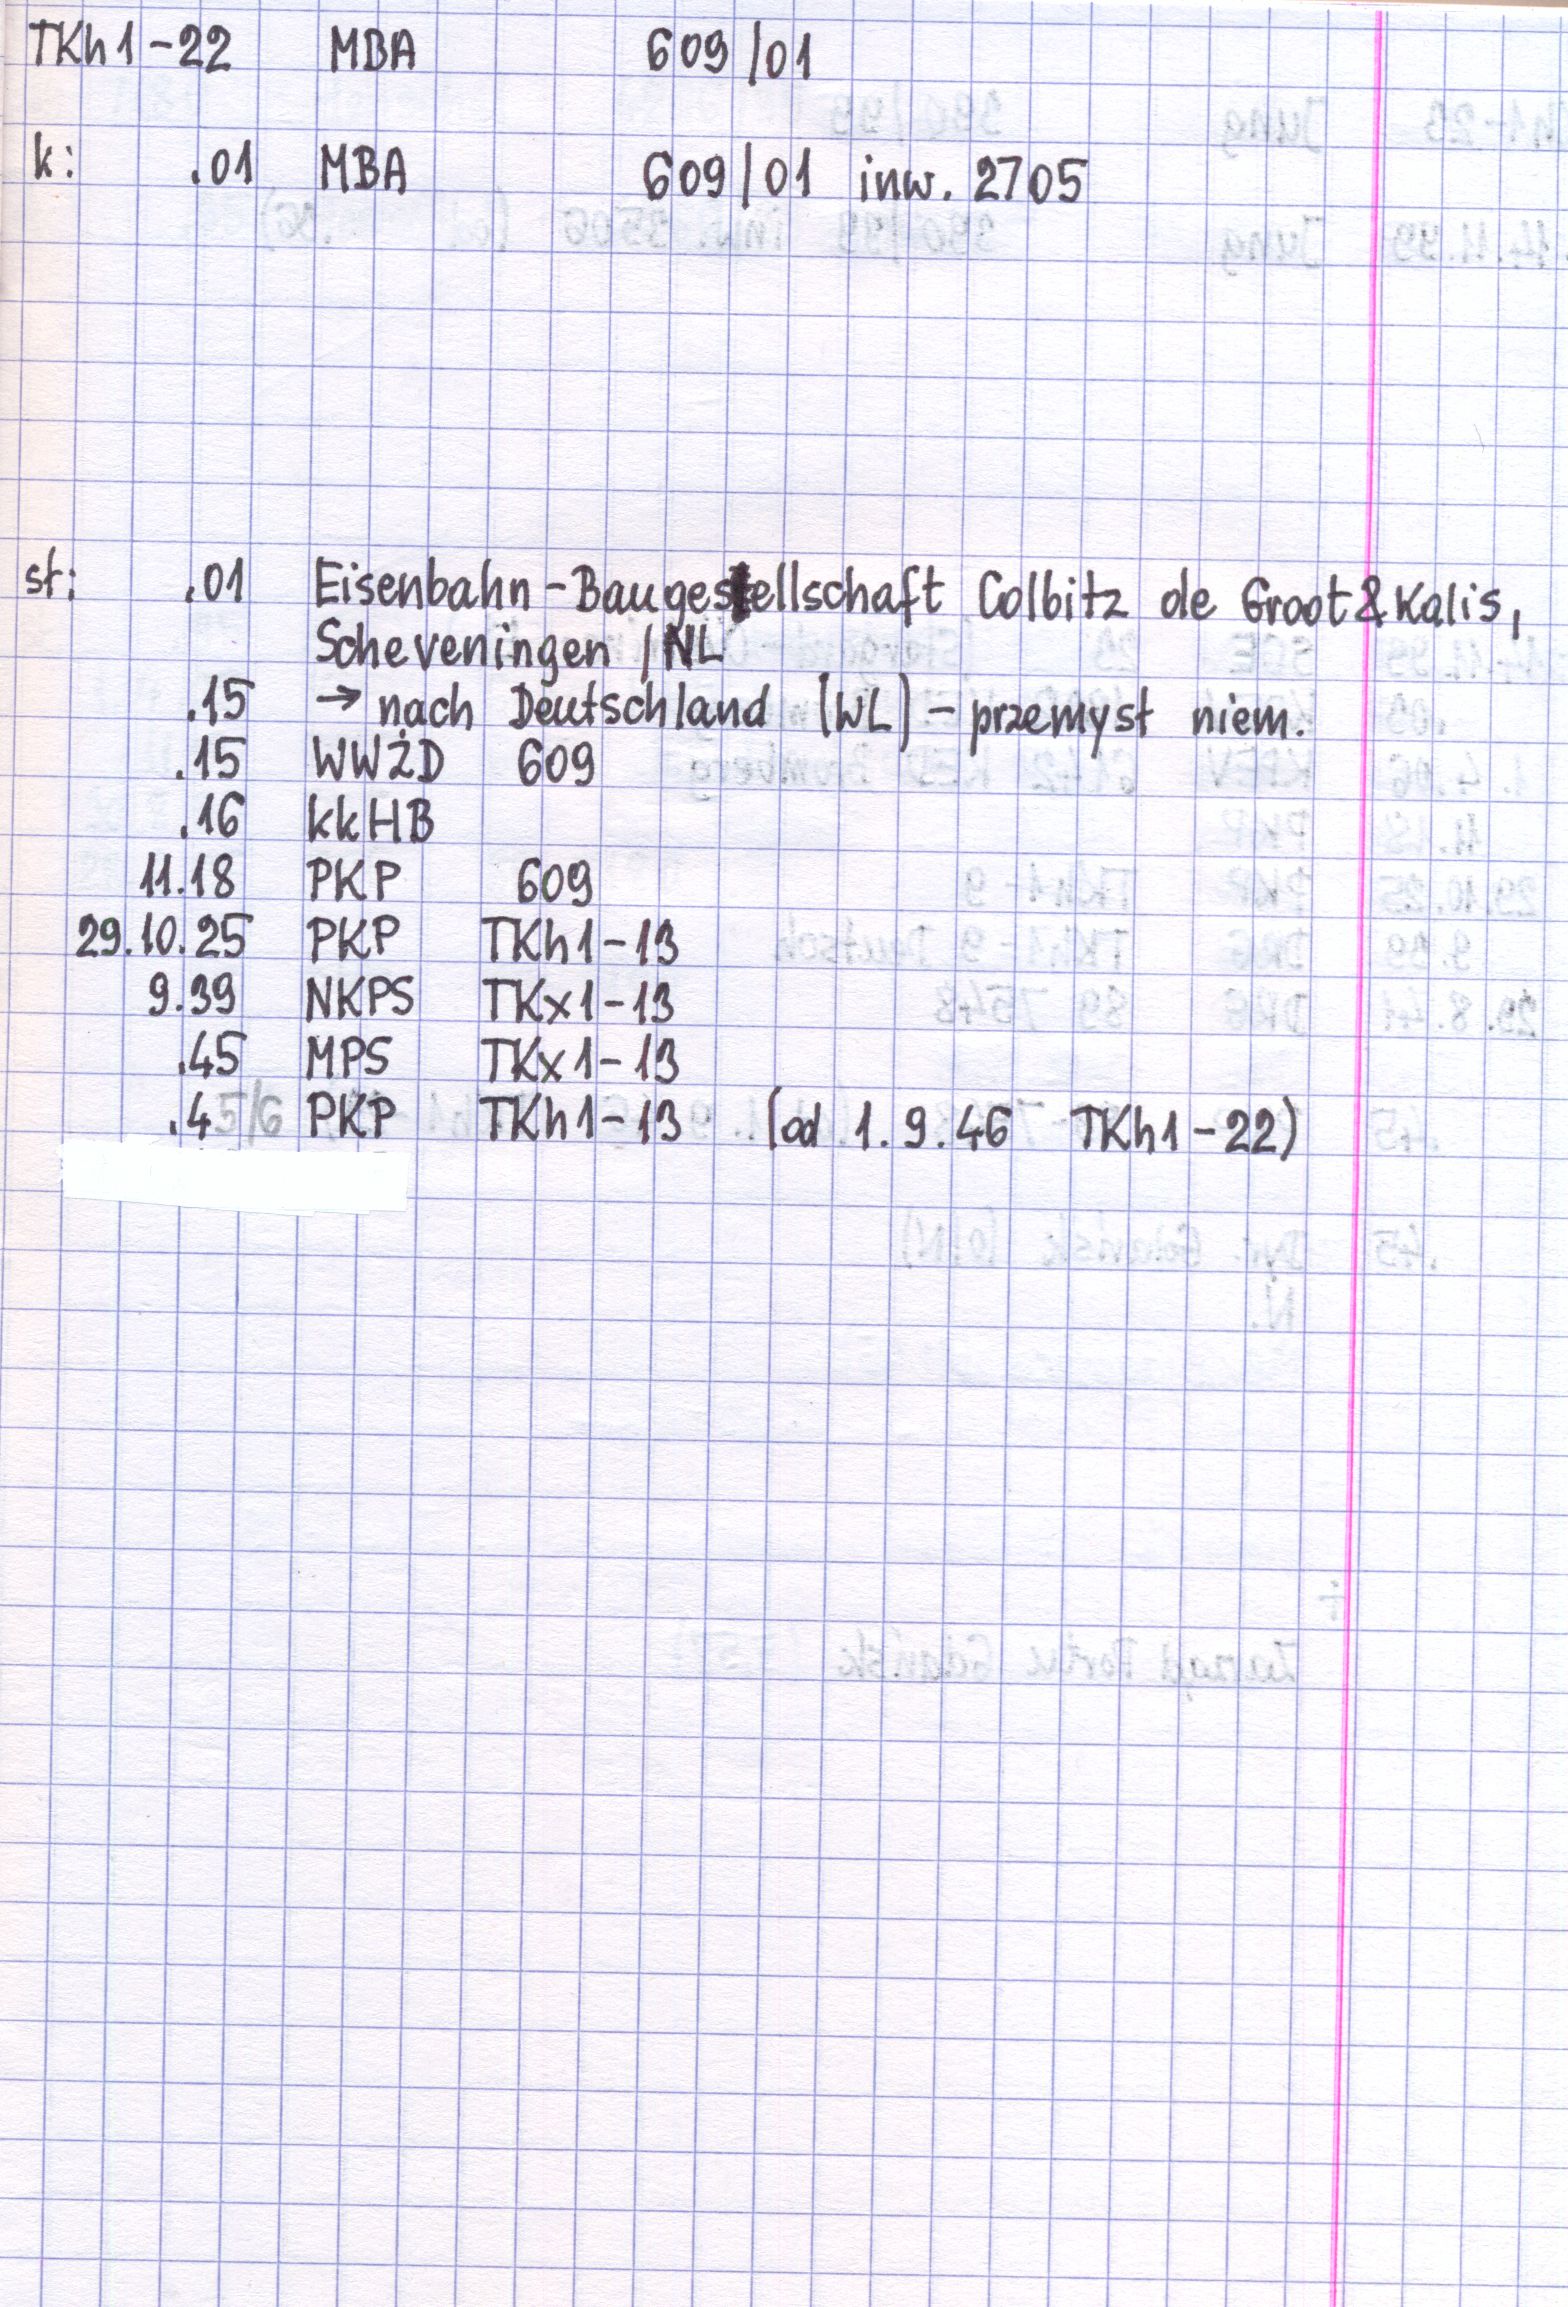 TKh1-22 MBA 609/01
k: .01 MBA 609/01 inw. 2705
st: .01 Eisenbahn-Baugesellschaft Colbitz de Groot & Kalis,
Scheveningen /NL
.15 → nach Deutschland (WL) - przemysł niem.
.15 WWŻD 609
.16 kkHB
11.18 PKP 609
29.10.25 PKP TKh1-13
9.39 NKPS TKx1-13
.45 MPS TKx1-13
.4 PKP TKh1-13 (od 1.9.46 TKh1-22)